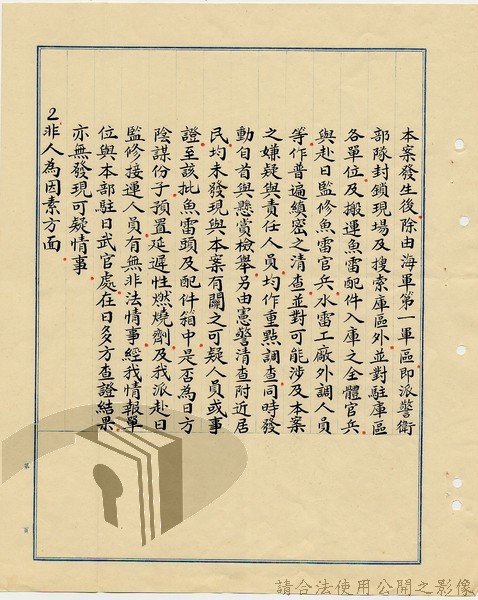 本案發生後除由海軍第一軍區即派警衛
部隊封鎖現場及搜索庫區外並對駐庫區
各單位及搬運魚雷配件入庫之全體官兵
與赴日監修魚雷官兵水雷工廠外調人員
等作普遍縝密之清查並對可能涉及本案
之嫌疑與責任人員均作重點調查同時發
動自首與懸賞檢舉另由憲警清查附近居
民均未發現與本案有關之可疑人員或事
證至該批魚雷頭及配件箱中是否為日方
陰謀份子預置延遲性燃燒劑及我派赴日
監修接運人員有無非法情事經我情報單
位與本部駐日武官處在日多方查證結果
亦無發現可疑情事
2.非人為因素方面
請合法使用公開之影像